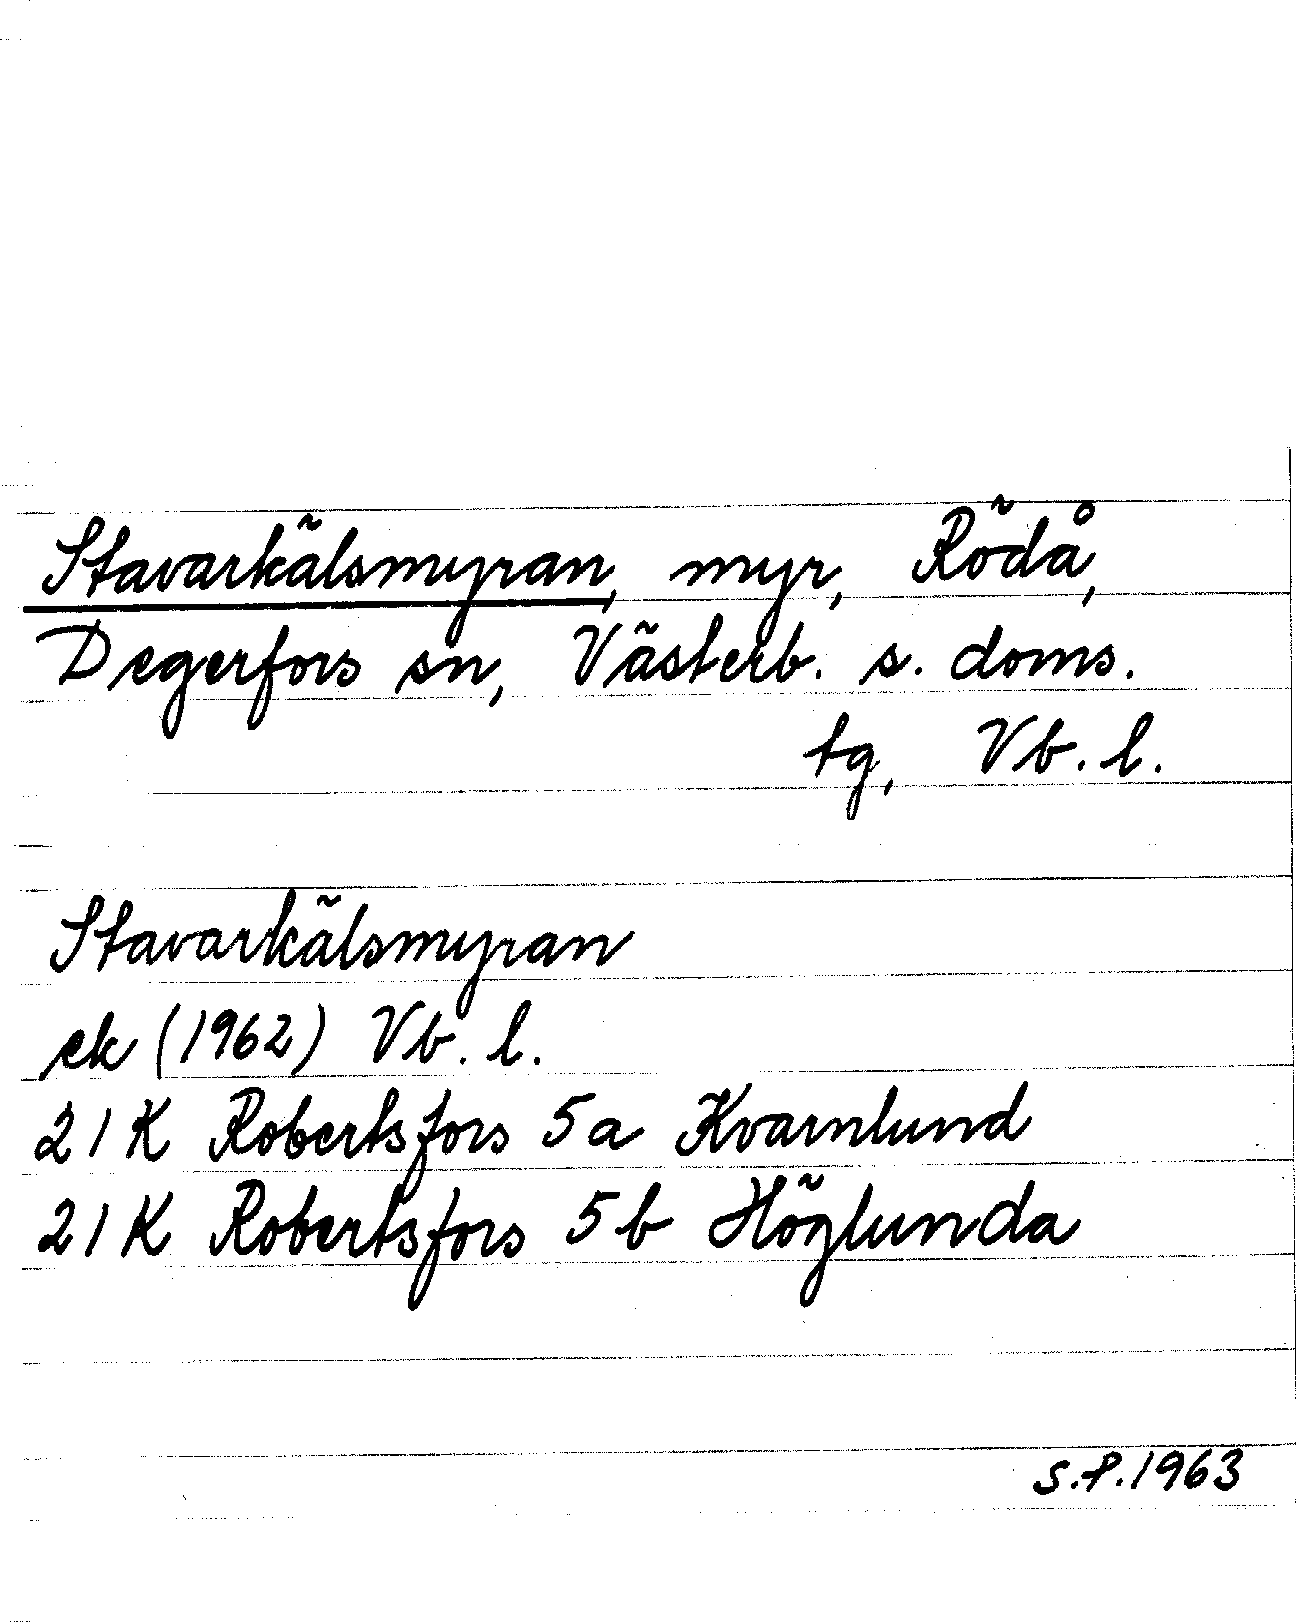 Stavarkälsmyran, myr, Rödå,
Degerfors sn, Västerb. s. doms.
tg, Vb. l.
Stavarkälsmyran
ek (1962) Vb. l.
21 K Robertsfors 5 a Kvarnlund
21 K Robertsfors 5 b Höglunda
S.P. 1963